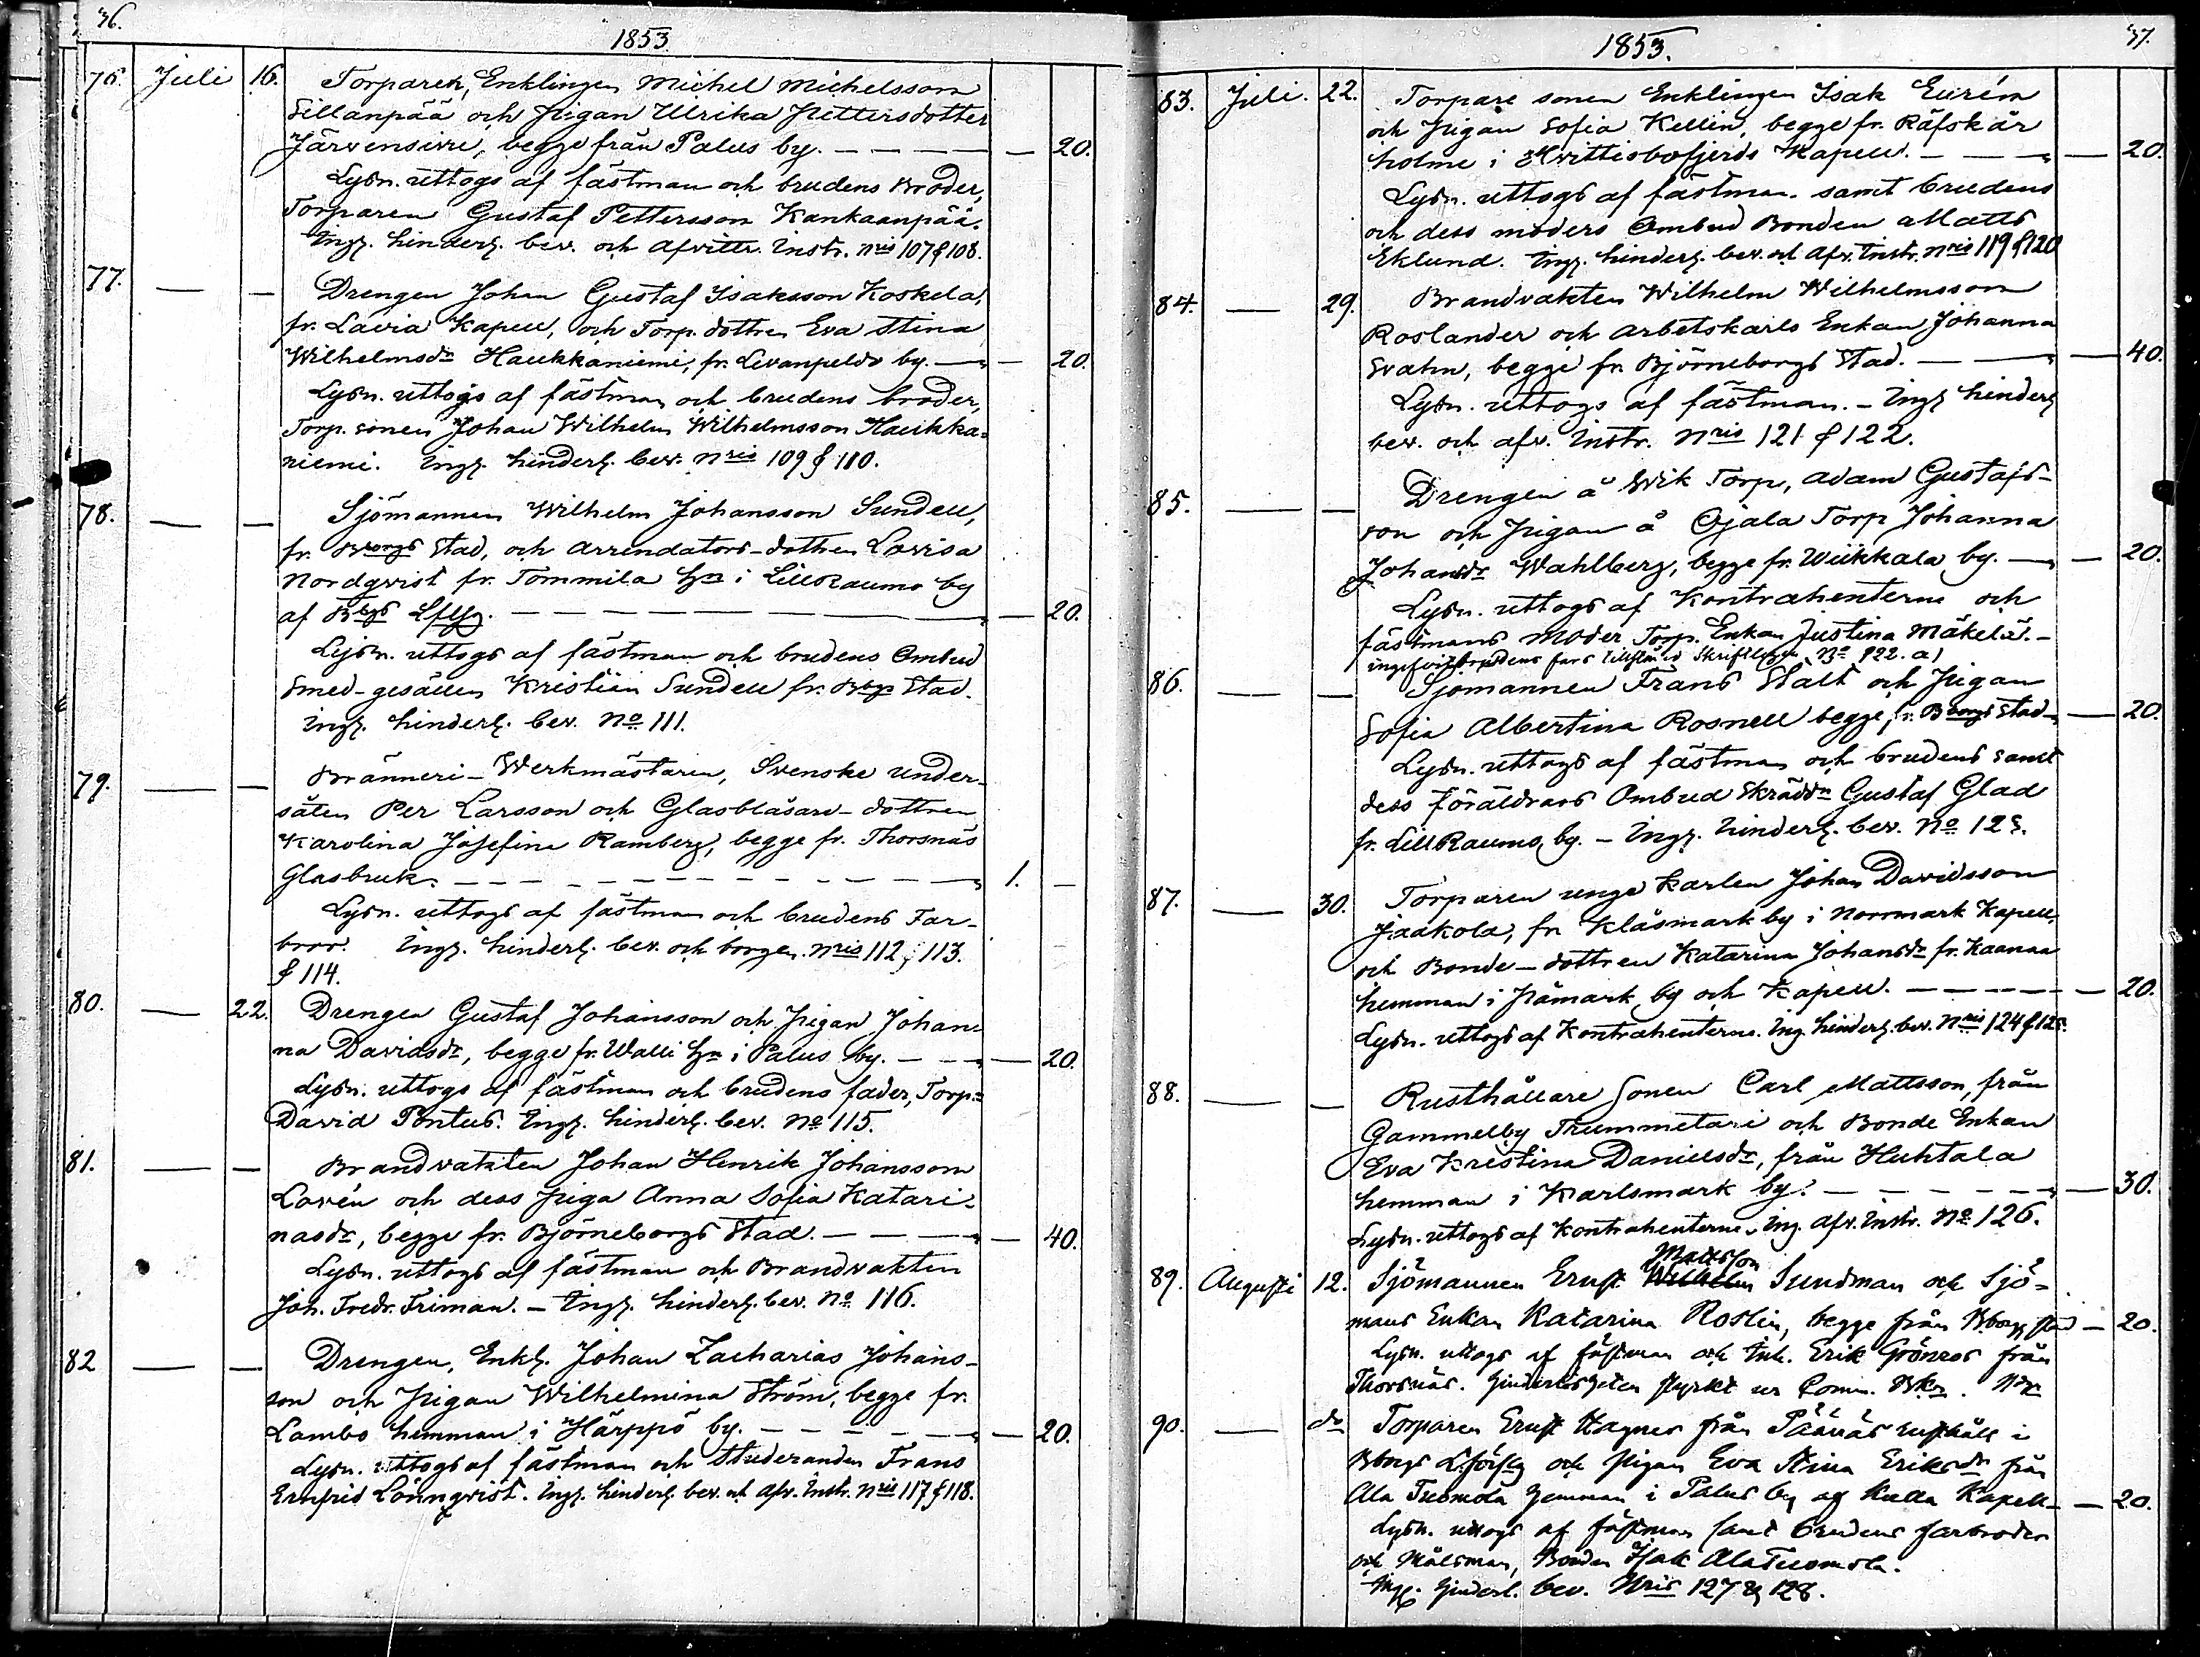 36.
1853
76. Juli 16. Torparen, Enklingen Michel Michelsson
Sillanpää och Pigan Ulrika Pettersdotter
Järvensivu, begge från Palus by. — 20.
Lysn. uttogs af fästman och brudens Broder,
Torparen Gustaf Pettersson Kankaanpää.
Ingz. hinderl. bev. och Afvittr. Instr. Nris 107 & 108.
77. — — Drengen Johan Gustaf Isaksson Koskela,
fr. Lavia Kapell, och Torp. dottren Eva Stina
Wilhelmsdr Haukkaniemi, fr. Levanpelto by. — 20.
Lysn. uttogs af fästman och brudens broder,
Torp. sonen Johan Wilhelm Wilhelmsson Haukka-
niemi. Ingz. hinderl. bev. Nris 109 & 110.
78. — — Sjömannen Wilhelm Johansson Sundell,
fr. Bborgs Stad, och Arrendators-dottren Lovisa
Nordqvist fr. Tommila Hn i LillRaumo by
af Bbgs — 20.
Lysn. uttogs af fästman och brudens Ombud
Smed-gesällen Kristian Sundell fr. Bbgs Stad.
Ingz. hinderl. bev. No 111.
79. — — Bränneri-Werkmästaren, Svenske under-
såten Per Larsson och Glasblåsare-dottren
Karolina Josefina Ramberg, begge fr. Thorsnäs
Glasbruk. — 1. —
Lysn. uttogs af fästman och brudens Far-
bror. Ingz. hinderl. bev. och borgen. Nris 112, 113.
& 114.
80. — 22. Drengen Gustaf Johansson och Pigan Johan-
na Davidsdr, begge fr. Walli Hn i Palus by. — 20.
Lysn. uttogs af fästman och brudens fader, Torp.
David Pontus. Ingz. hinderl. bev. No 115.
81. — — Brandvakten Johan Henrik Johansson
Lovén och dess piga Anna Sofia Katari-
nasdr, begge fr. Björneborgs Stad. — 40.
Lysn. uttogs af fästman och Brandvakten
Joh. Fredr. Friman. — Ingz. hinderl. bev. No 116.
82 — — Drengen, Enkl. Johan Zacharias Johans-
son och Pigan Wilhelmina Ström, begge fr.
Lambo hemman i Härppö by. — 20.
Lysn. uttogs af fästman och Studeranden Frans
Ernfrid Lönnqvist. Ingz. hinderl. bev. och Afv. Instr. Nris 117 & 118.
37.
1853.
83. Juli. 22. Torpare sonen Enklingen Isak Eurén
och Pigan Sofia Kellin, begge fr. Räfskär
holme i Hvittisbofjerds Kapell. — 20.
Lysn. uttogs af fästman samt brudens
och dess moders Ombud Bonden Matts
Eklund. Ingz. hinderl. bev. och Afv. Instr. Nris 119 & 120
84. — 29. Brandvakten Wilhelm Wilhelmsson
Roslander och Arbetskarls Enkan Johanna
Svahn, begge fr. Björneborgs Stad. — 40.
Lysn. uttogs af fästman. — Ingz hinderl
bev. och afv. Instr. Nris 121 & 122.
85. — — Drengen å Wik Torp, Adam Gustafs-
son och Pigan å Ojala Torp Johanna
Johansdr Wahlberg, begge fr. Wiikkala by. — 20.
Lysn. uttogs af Kontrahenterne och
fästmans Moder Torp. Enkan Justina Mäkelä. —
brudens fars No 122. a)
86. — — Sjömannen Frans Stålt och Pigan
Sofia Albertina Rosnell begge fr. Bborgs Stad — 20.
Lysn. uttogs af fästman och brudens samt
dess föräldrars Ombud Skräddn Gustaf Glad
fr. LillRaumo by. — Ingz. hinderl. bev. No 123.
87. — 30. Torparen unge Karlen Johan Davidsson
Jaakola, fr Klåsmark by i Norrmark Kapell,
och Bonde-dottren Katarina Johansdr fr. Kaanaa
hemman i Påmark by och Kapell. — 20.
Lysn. uttogs af Kontrahenterne. Ing. hinderl. bev. Nris 124 & 125.
88. — — Rusthållare Sonen Carl Mattsson, från
Gammelby Trummetari och Bonde Enkan
Eva Kristina Danielsdr, från Huhtala
hemman i Karlsmark by. — 30.
Lysn. uttogs af Kontrahenterne. Ing. Afv. Instr. No 126.
Mattsson
89. Augusti 12. Sjömannen Ernst Wilhelm Sundman och Sjö-
mans Enkan Katarina Roslin, begge från Bborgs stad — 20.
Lysn. uttogs af fästman och Inh. Erik Grönros från
Thorsnäs. Hinderlösheten styrkt ur Comm. Bkn.
90. — do Torparen Ernst Hagner från Päävää rusthåll i
Bborgs och Pigan Eva Stina Eriksdr från
Ala Tuomola hemman i Palus by af Kulla Kapell — 20.
Lysn. uttogs af fästman samt brudens farbroder
och Målsman, Bonden Isak AlaTuomola.
Ingz. hinderl. bev. Nris 127 & 128.